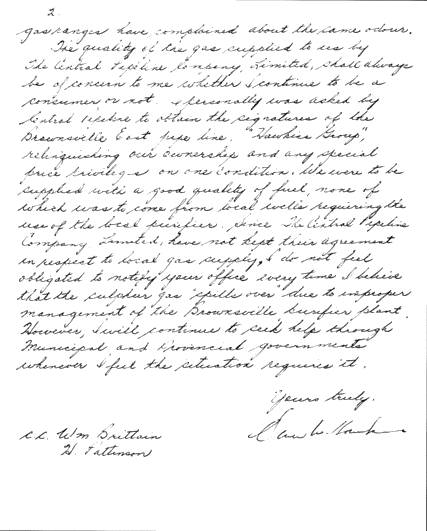 2.
gas ranges have complained about the same odour.
The quality of the gas supplied to us by
The Central Pipeline Company, Limited, shall always
be of concern to me whether I continue to be a
consumer or not. I personally was asked by
Central Pipeline to obtain the signatures of the
Brownsville East pipe line, "Hawkins Group",
relinquishing our ownership and any special
price privileges on one condition. We were to be
supplied with a good quality of fuel, none of
which was to come from local wells requiring the
use of the local purifier. Since The Central Pipeline
Company Limited, have not kept their agreement
in respect to local gas supply, I do not feel
obligated to notify your office every time I believe
that the sulphur gas "spills over" due to improper
management of the Brownsville purifier plant.
However, I will continue to seek help through
Municipal and Provincial governments
whenever I feel the situation requires it.
Yours truly.
c.c. Wm Brittain
H. Pattinson